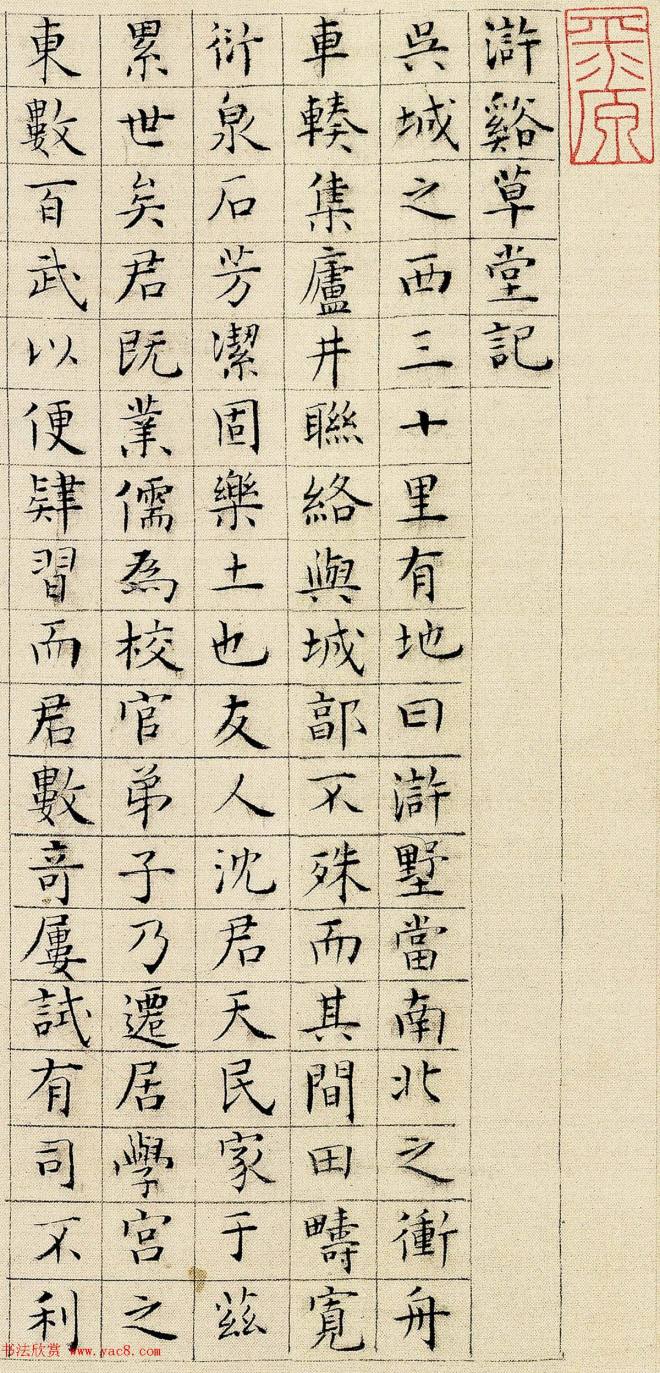 平原
滸谿草堂記
吳城之西三十里有地曰滸墅當南北之衝舟
車輳集廬井聯絡與城郭不殊而其間田疇寬
衍泉石芳潔固樂土也友人沈君天民家于茲
累世矣君既業儒為校官弟子乃遷居學宮之
東數百武以便肄習而君數奇屢試有司不利
书法欣赏 www.yac8.com